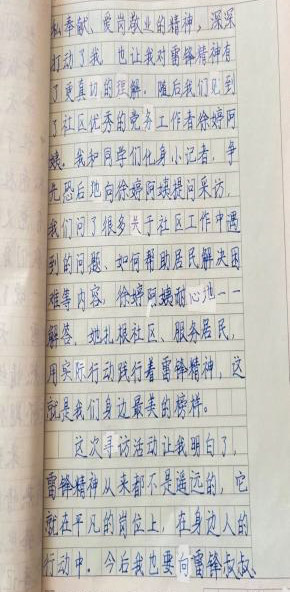 私奉献、爱岗敬业的精神，深深
打动了我，也让我对雷锋精神有
了更真切的理解。随后我们见到
了社区优秀的党务工作者徐婷阿
姨。我和同学们化身小记者，争
先恐后地向徐婷阿姨提问采访，
我们问了很多关于社区工作中遇
到的问题、如何帮助居民解决困
难等内容，徐婷阿姨耐心地一一
解答。她扎根社区、服务居民，
用实际行动践行着雷锋精神，这
就是我们身边最美的榜样。
这次寻访活动让我明白了，
雷锋精神从来都不是遥远的，它
就在平凡的岗位上，在身边人的
行动中。今后我也要向雷锋叔叔、